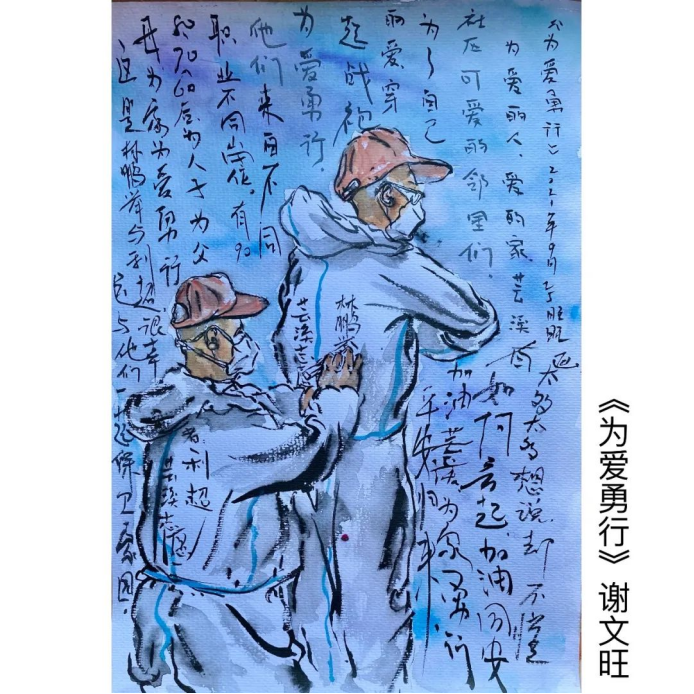 《为爱勇行》2021年9月于旺旺
为爱的人、爱的家、芸溪
社区可爱的邻里们，
为了自己
的爱，穿
起战袍
为爱勇行，
他们来自不同
职业不同岗位，有90
和70、60后为人子为父
再为家为爱勇行
这是林鹏举与利超很幸
与他们一起保卫家园，
太多太多想说却不
如何言起，加油同安
加油芸溪为家勇行
平安归来，
林鹏举
芸溪志愿
者利超
芸溪志愿
《为爱勇行》谢文旺